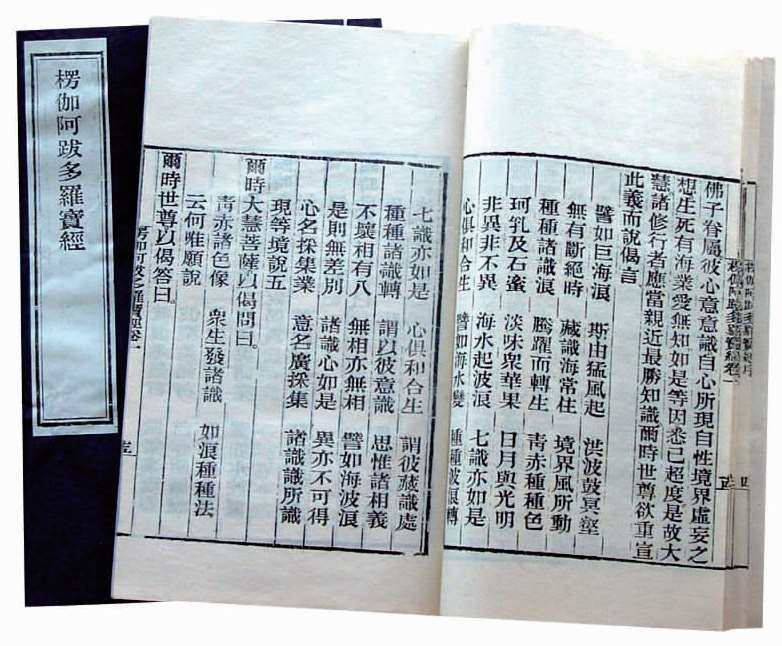 楞伽阿跋多羅寶經
佛子眷屬彼心意意識自心所現自性境界虛妄之
想生死有海業愛無知如是等因悉已超度是故大
慧諸修行者應當親近最勝知識爾時世尊欲重宣
此義而說偈言
譬如巨海浪 斯由猛風起 洪波鼓冥壑
無有斷絕時 藏識海常住 境界風所動
種種諸識浪 騰躍而轉生 青赤種種色
珂乳及石蜜 淡味眾華果 日月與光明
非異非不異 海水起波浪 七識亦如是
心俱和合生 譬如海水變 種種波浪轉
七識亦如是 心俱和合生 謂彼藏識處
種種諸識轉 謂以彼意識 思惟諸相義
不壞相有八 無相亦無相 譬如海波浪
是則無差別 諸識心如是 異亦不可得
心名採集業 意名廣採集 諸識識所識
現等境說五
爾時大慧菩薩以偈問曰。
青赤諸色像 眾生發諸識 如浪種種法
云何唯願說
爾時世尊以偈答曰。
楞伽阿跋多羅寶經卷一